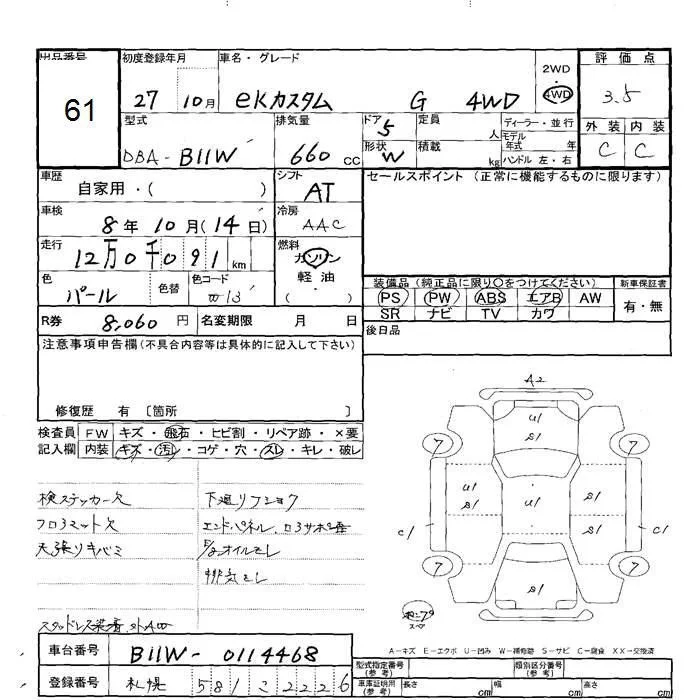 出品番号 初度登録年月 車名・グレード 2WD 評価点
61 27 10月 eKカスタム G 4WD 4WD 3.5
型式 排気量 ドア 5 定員 人 ディーラー・並行 外装 内装
DBA-B11W 660 CC 形状 W 積載 kg モデル年式 年 ハンドル 左・右 C C
車歴 自家用・( ) シフト AT セールスポイント (正常に機能するものに限ります)
車検 8年 10月(14日) 冷房 AAC
走行 12万0千091km 燃料 ガソリン
色 パール 色替 色コード W13 軽油 ( )
装備品(純正品に限り○をつけてください) 新車保証書
PS PW ABS エアB AW 有・無
SR ナビ TV カワ
R券 8,060円 名変期限 月 日 後日品
注意事項申告欄(不具合内容等は具体的に記入して下さい)
修復歴 有 〔箇所 〕
検査員 FW キズ・飛石・ヒビ割・リペア跡・×要
記入欄 内装 キズ・汚レ・コゲ・穴・スレ・キレ・破レ
検ステッカー欠 下廻リフショク
フロアマット欠 エンドパネル、
天張リキバミ オイルモレ
排気モレ
スタッドレス装着
A2
U1
S1
7 7
U1 S1 U1 S1 S1
C1 C1
7 7
S1
スペア
A-キズ E-エクボ U-凹み W-補修跡 S-サビ C-腐食 XX-交換済
車台番号 B11W-0114468 型式指定番号(参考) 類別区分番号(参考)
登録番号 札幌 581 こ 2226 車庫証明用(参考) 長さ cm 幅 cm 高さ cm